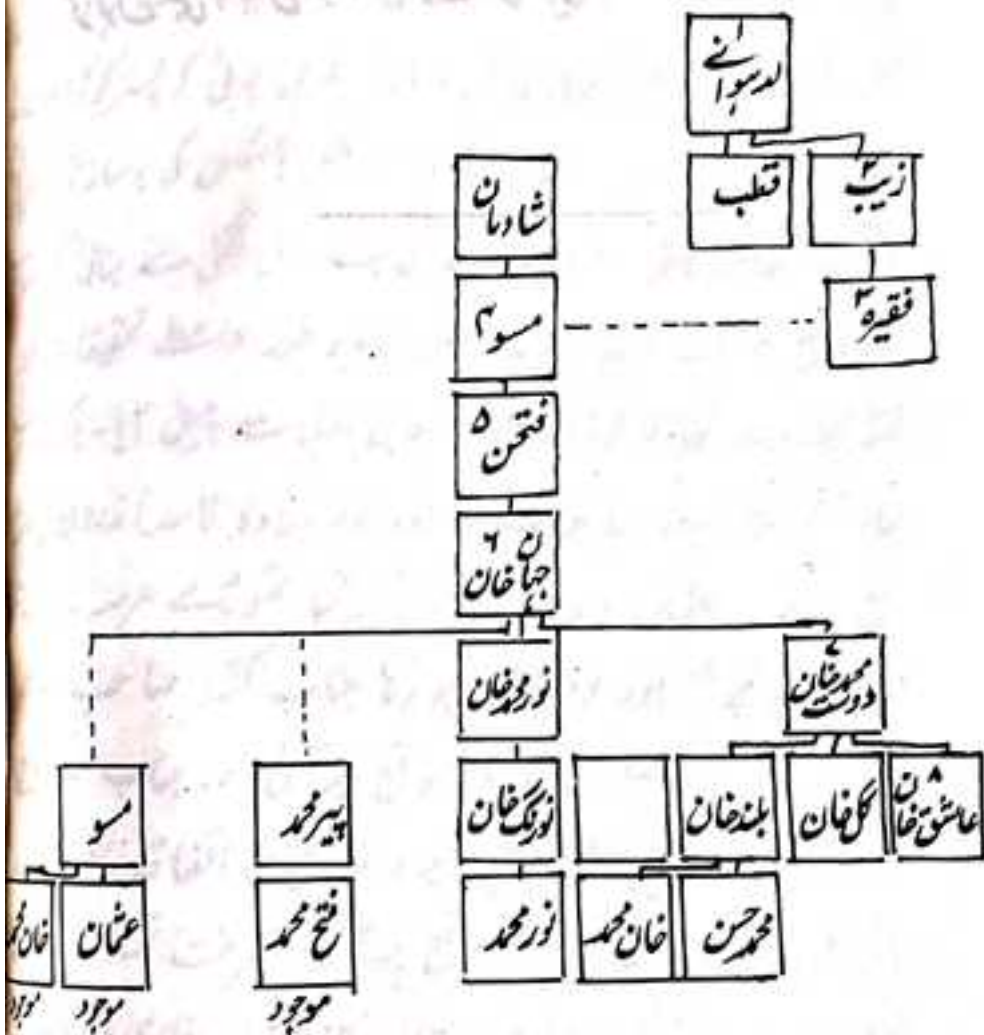 ۱
لدسوانے
قطب
زیب ۲
شادمان
فقیرہ ۳
مسو ۴
فتحن ۵
جہان خان ۶
محمد خان ۷
دوست
نور محمد خان
عاشق خان ۸
گل خان
بلند خان
نورنگ خان
پیر محمد
مسو
محمد حسن
خان محمد
نور محمد
فتح محمد
عثمان
خان محمد
موجود
موجود
موجود